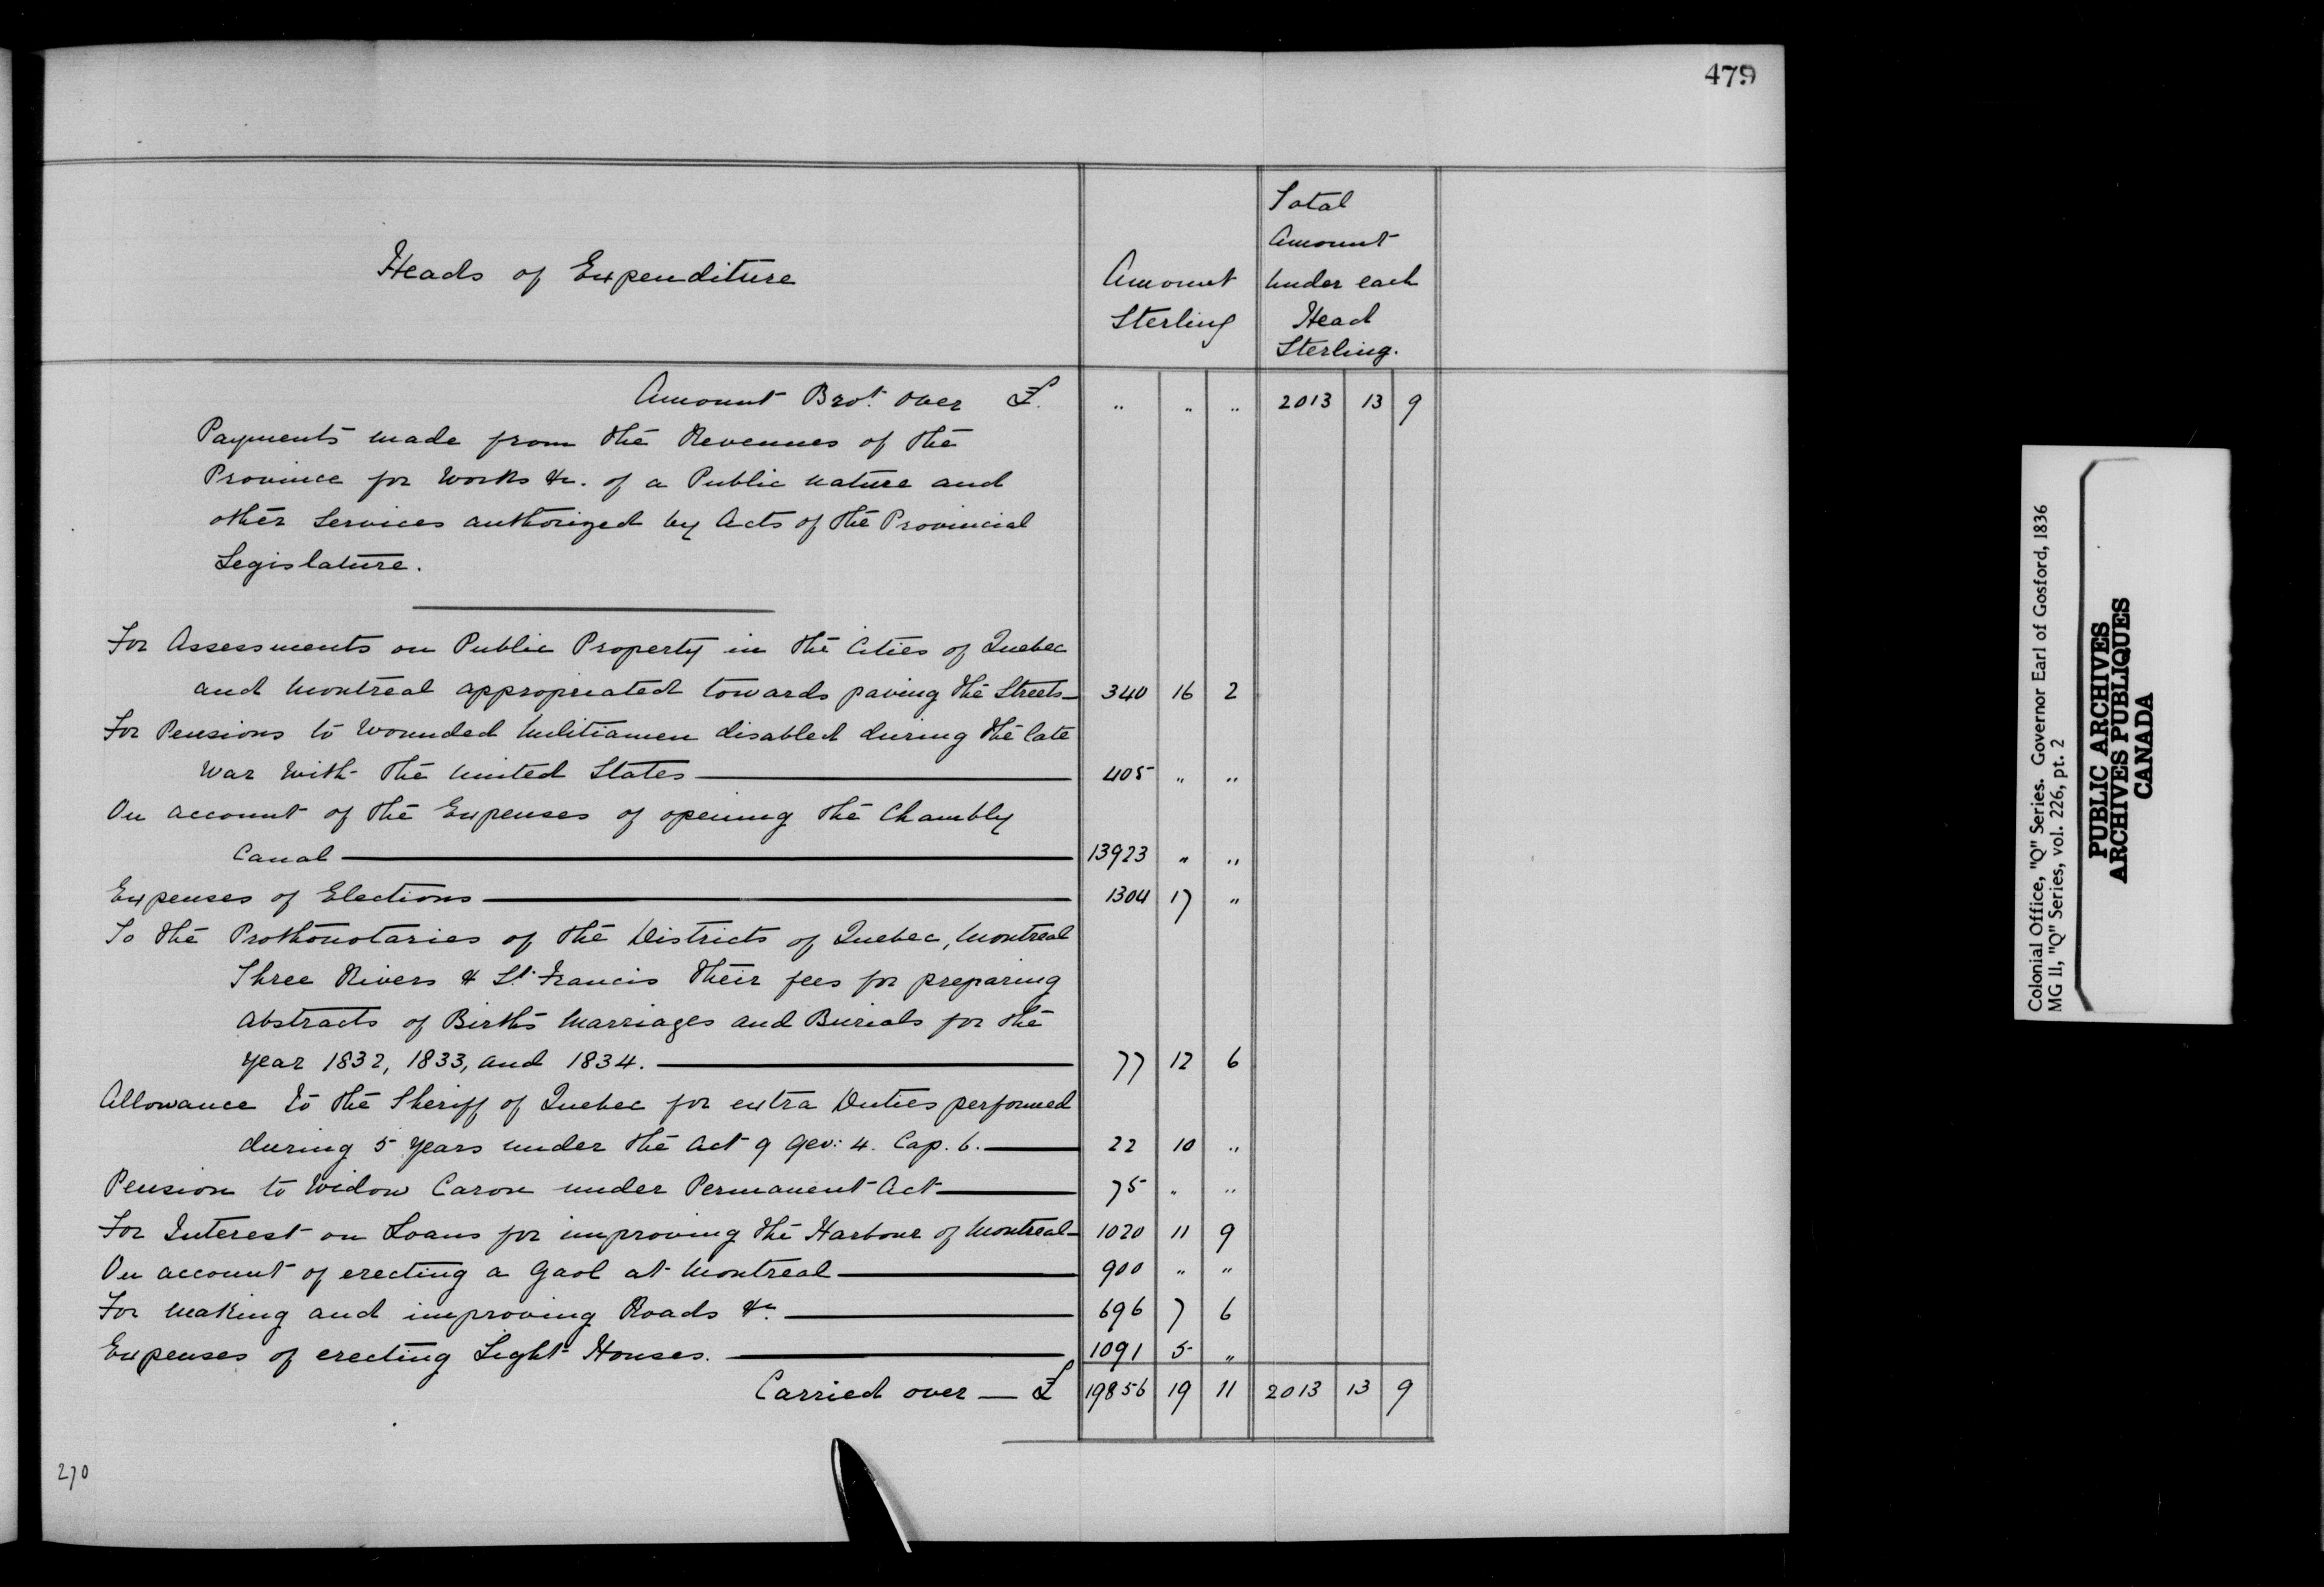 479
Heads of Expenditure
Amount
Sterling
Total
Amount
under each
Head
Sterling.
Amount Brot. over £. " " " 2013 13 9
Payments made from the Revenues of the
Province for Works &c. of a Public nature and
other Services authorized by Acts of the Provincial
Legislature.
For Assessments on Public Property in the Cities of Quebec
and Montreal appropriated towards paving the Streets — 340 16 2
For Pensions to Wounded Militiamen disabled during the late
War with the United States — 405 " "
On account of the Expenses of opening the Chambly
Canal — 13923 " "
Expenses of Elections — 1304 17 "
To the Prothonotaries of the Districts of Quebec, Montreal
Three Rivers & St. Francis their fees for preparing
Abstracts of Births Marriages and Burials for the
year 1832, 1833, and 1834. — 77 12 6
Allowance to the Sheriff of Quebec for extra Duties performed
during 5 years under the Act 9 Geo: 4. Cap. 6. — 22 10 "
Pension to Widow Caron under Permanent Act — 75 " "
For Interest on Loans for improving the Harbour of Montreal — 1020 11 9
On account of erecting a Gaol at Montreal — 900 " "
For making and improving Roads &c. — 696 7 6
Expenses of erecting Light Houses. — 1091 5 "
Carried over — £ 19856 19 11 2013 13 9
270
Colonial Office, "Q" Series. Governor Earl of Gosford, 1836
MG 11, "Q" Series, vol. 226, pt. 2
PUBLIC ARCHIVES
ARCHIVES PUBLIQUES
CANADA